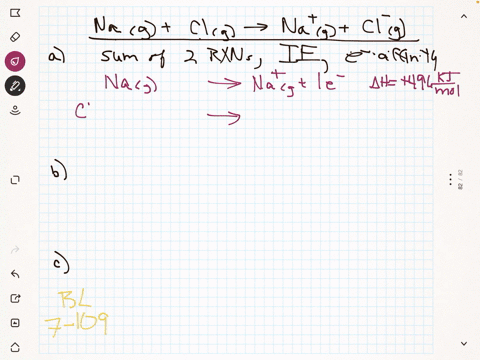 Na(g) + Cl(g) → Na⁺(g) + Cl⁻(g)
a) sum of 2 RXNs, IE, e⁻ affinity
Na(g) → Na⁺(g) + 1e⁻ ΔH= +496 kJ/mol
C →
b)
c)
BL
7-109